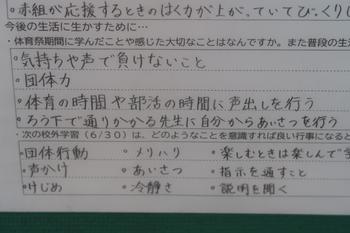 。赤組が応援するときのはく力が上が、ていてび、くりし
今後の生活に生かすために…
・体育祭期間に学んだことや感じた大切なことはなんですか。また普段の生
。気持ちや声で負けないこと
。団体力
。体育の時間や部活の時間に声出しを行う
。ろう下で通りかかる先生に自分からあいさつを行う
・次の校外学習(6/30)は、どのようなことを意識すれば良い行事になると
。団体行動 。メリハリ 。楽しむときは楽しんで学
。声かけ 。あいさつ 。指示を通すこと
。けじめ 。冷静さ 。説明を聞く